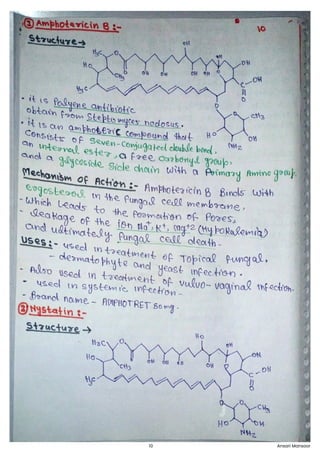 10
① Amphotericin B :-
Structure →
OH
H₃C
O
OH
OH
HO
CH₃
O
OH
OH
OH
OH
C - OH
O
H₃C
O
O
CH₃
HO
OH
NH₂
• it is Polyene antibiotic
obtain from Steptomyces nodosus.
• it is an amphoteric compound that
Consists of Seven-Conjugated double bond.
an internal ester, a free Carbonyl group.
and a glycoside Side chain With a Primary Amino group.
Mechanism of Action :- Amphotericin B Binds With
ergosterol in the fungal cell membrane.
- Which Leads to the formation of Pores,
- leakage of the ion Na⁺, K⁺, mg⁺² (Hypokalemia)
and ultimately fungal cell death.
Uses :- - used in treatment of Topical fungal,
- dermatophyte and yeast infection.
- Also used in treatment of vulvo-vaginal infection.
- used in systemic infection -
- Brand name - AMPHOTRET 50mg.
② Nystatin :-
Structure →
HO
H₃C
O
OH
OH
HO
CH₃
O
OH
OH
OH
C - OH
O
H₃C
O
O
CH₃
HO
OH
NH₂
10
Ansari Mansoor